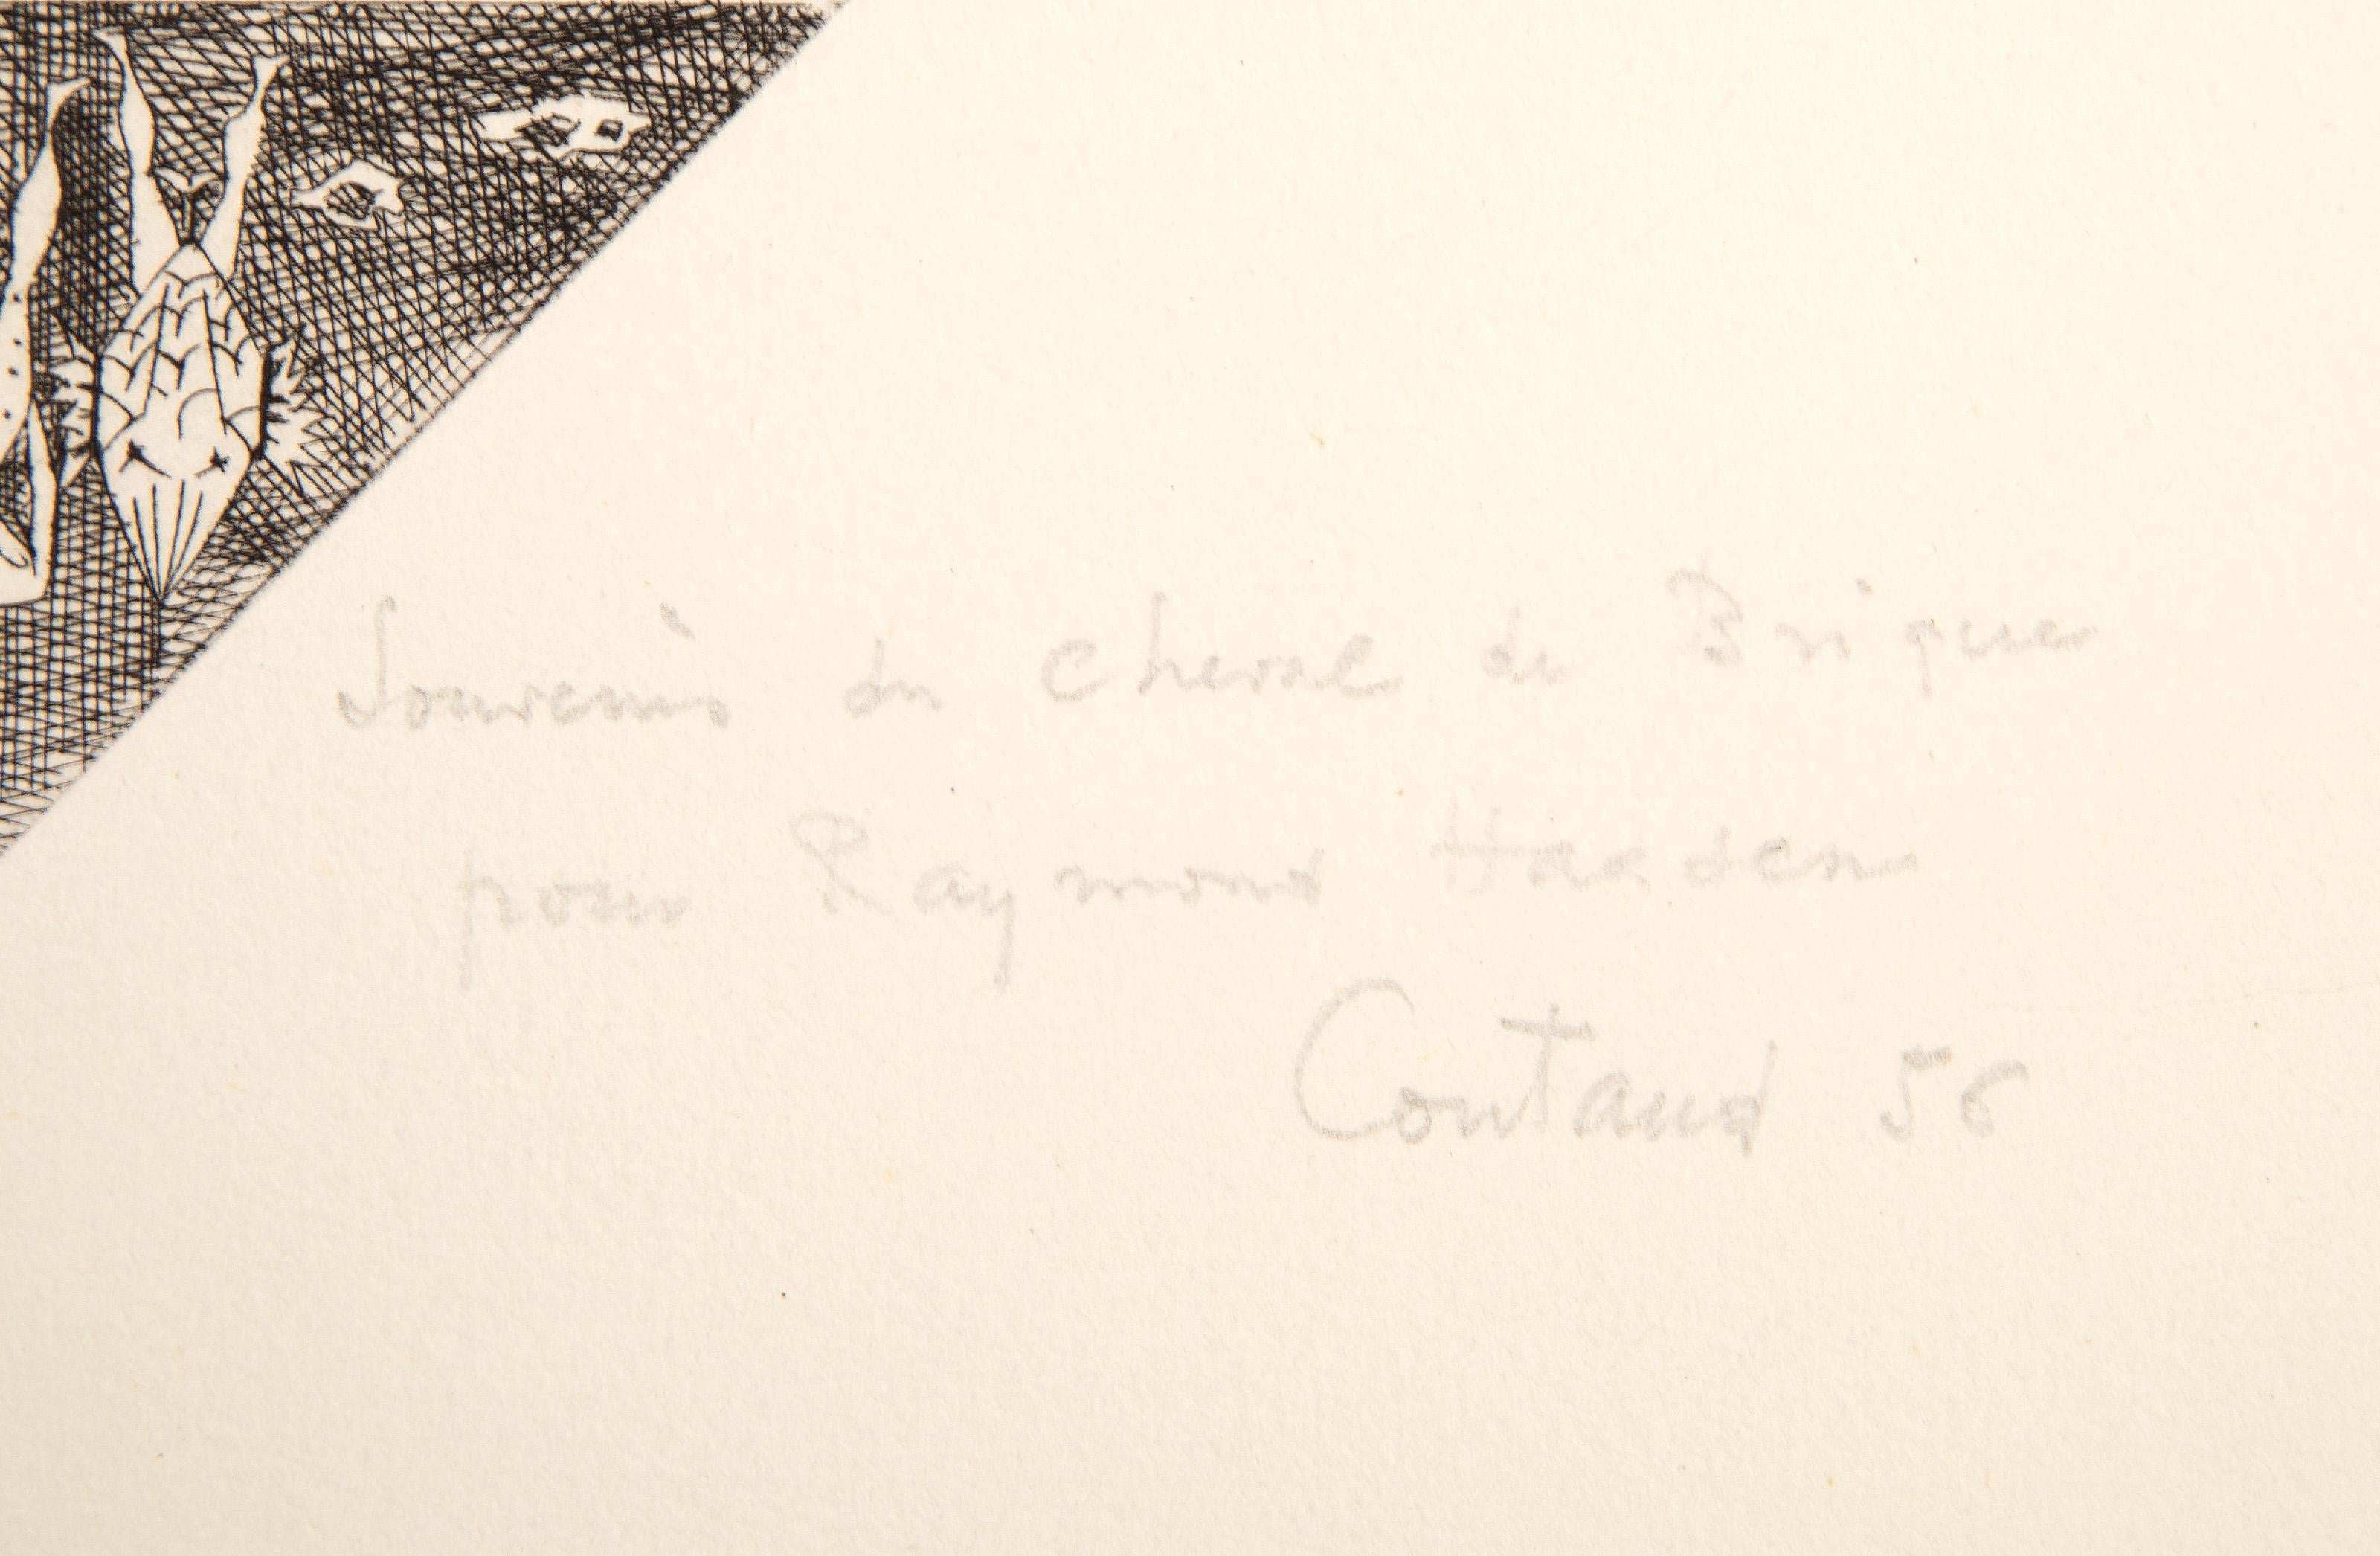 Souvenir du Cheval de Brique
pour Raymond Haasen
Coutaud 56